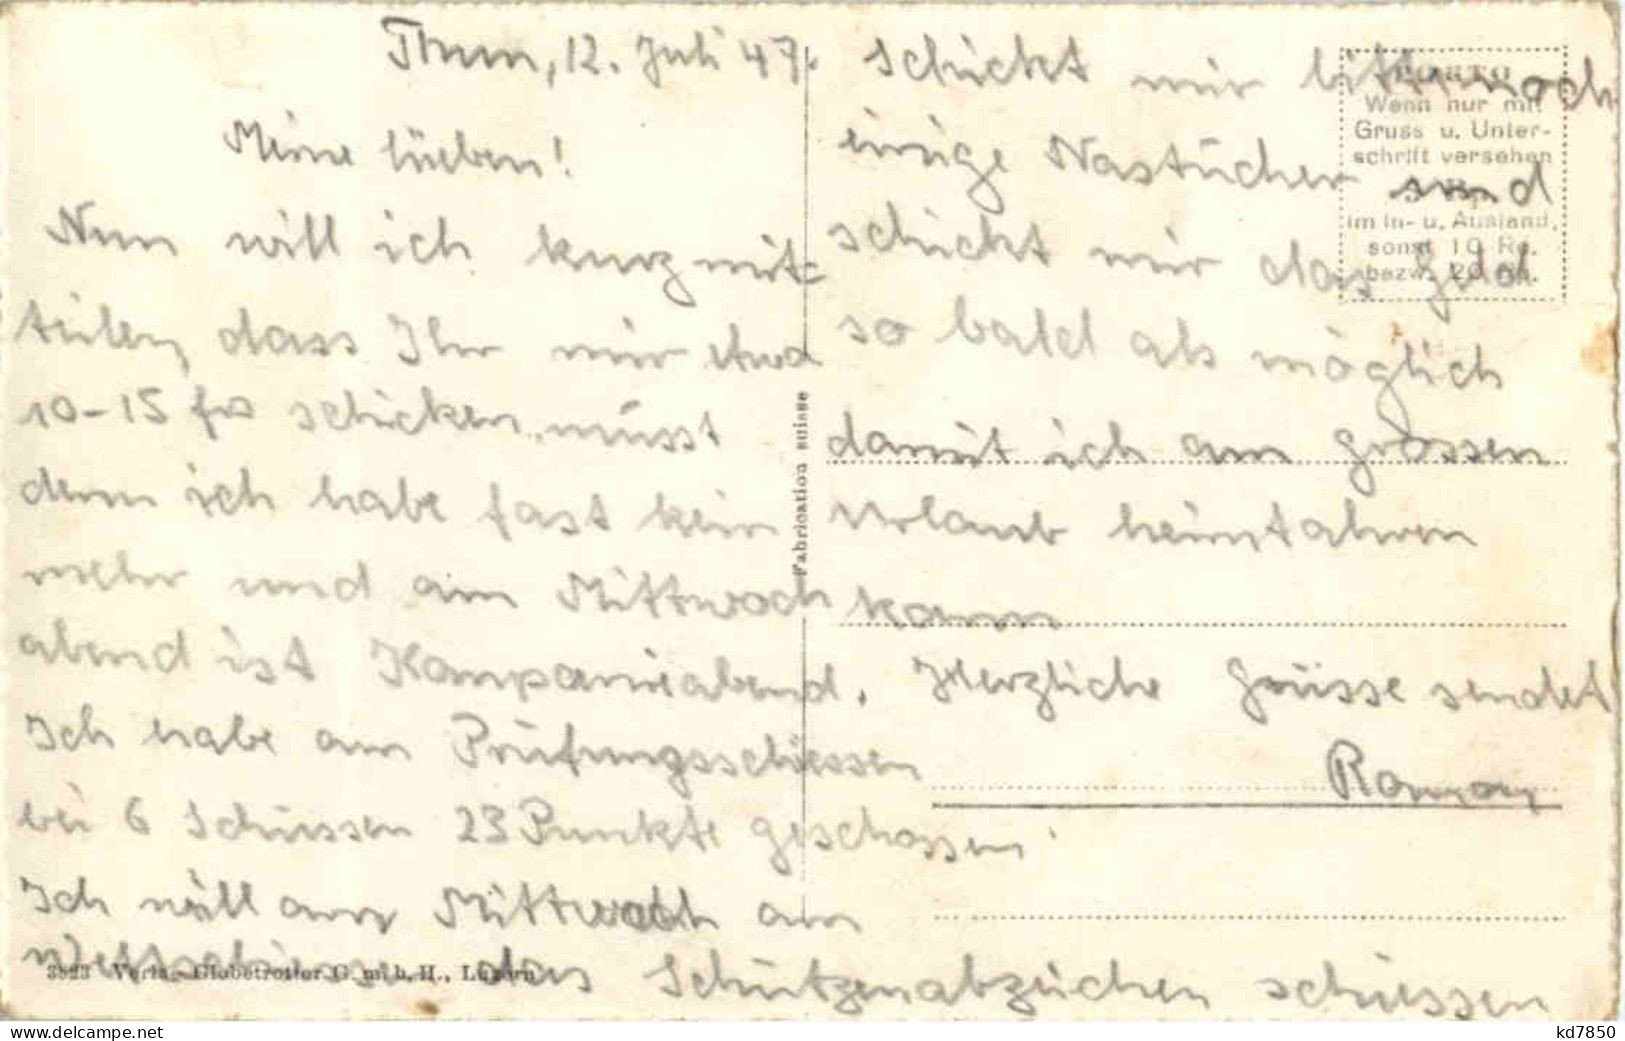 Thun, 12. Juli 47.
Meine lieben!
Nun will ich kurz mit-
teilen, dass Ihr mir etwa
10-15 frs schicken müsst
denn ich habe fast kein
mehr und am Mittwoch
abend ist Kompanieabend.
Ich habe am Prüfungsschiessen
bei 6 Schüssen 23 Punkte geschossen.
Ich will am Mittwoch am
das Schützenabzeichen schiessen
schickt mir bitte noch
einige Nastücher und
schickt mir das Geld
so bald als möglich
damit ich am grossen
Urlaub heimfahren
kann
Herzliche Grüsse sendet
Roman
PORTO
Wenn nur mit
Gruss u. Unter-
schrift versehen
im In- u. Ausland,
sonst 10 Rp.
bezw. 20 Rp.
Fabrication suisse
3823 Verlag Globetrotter G. m. b. H., Luzern
www.delcampe.net
kd7850